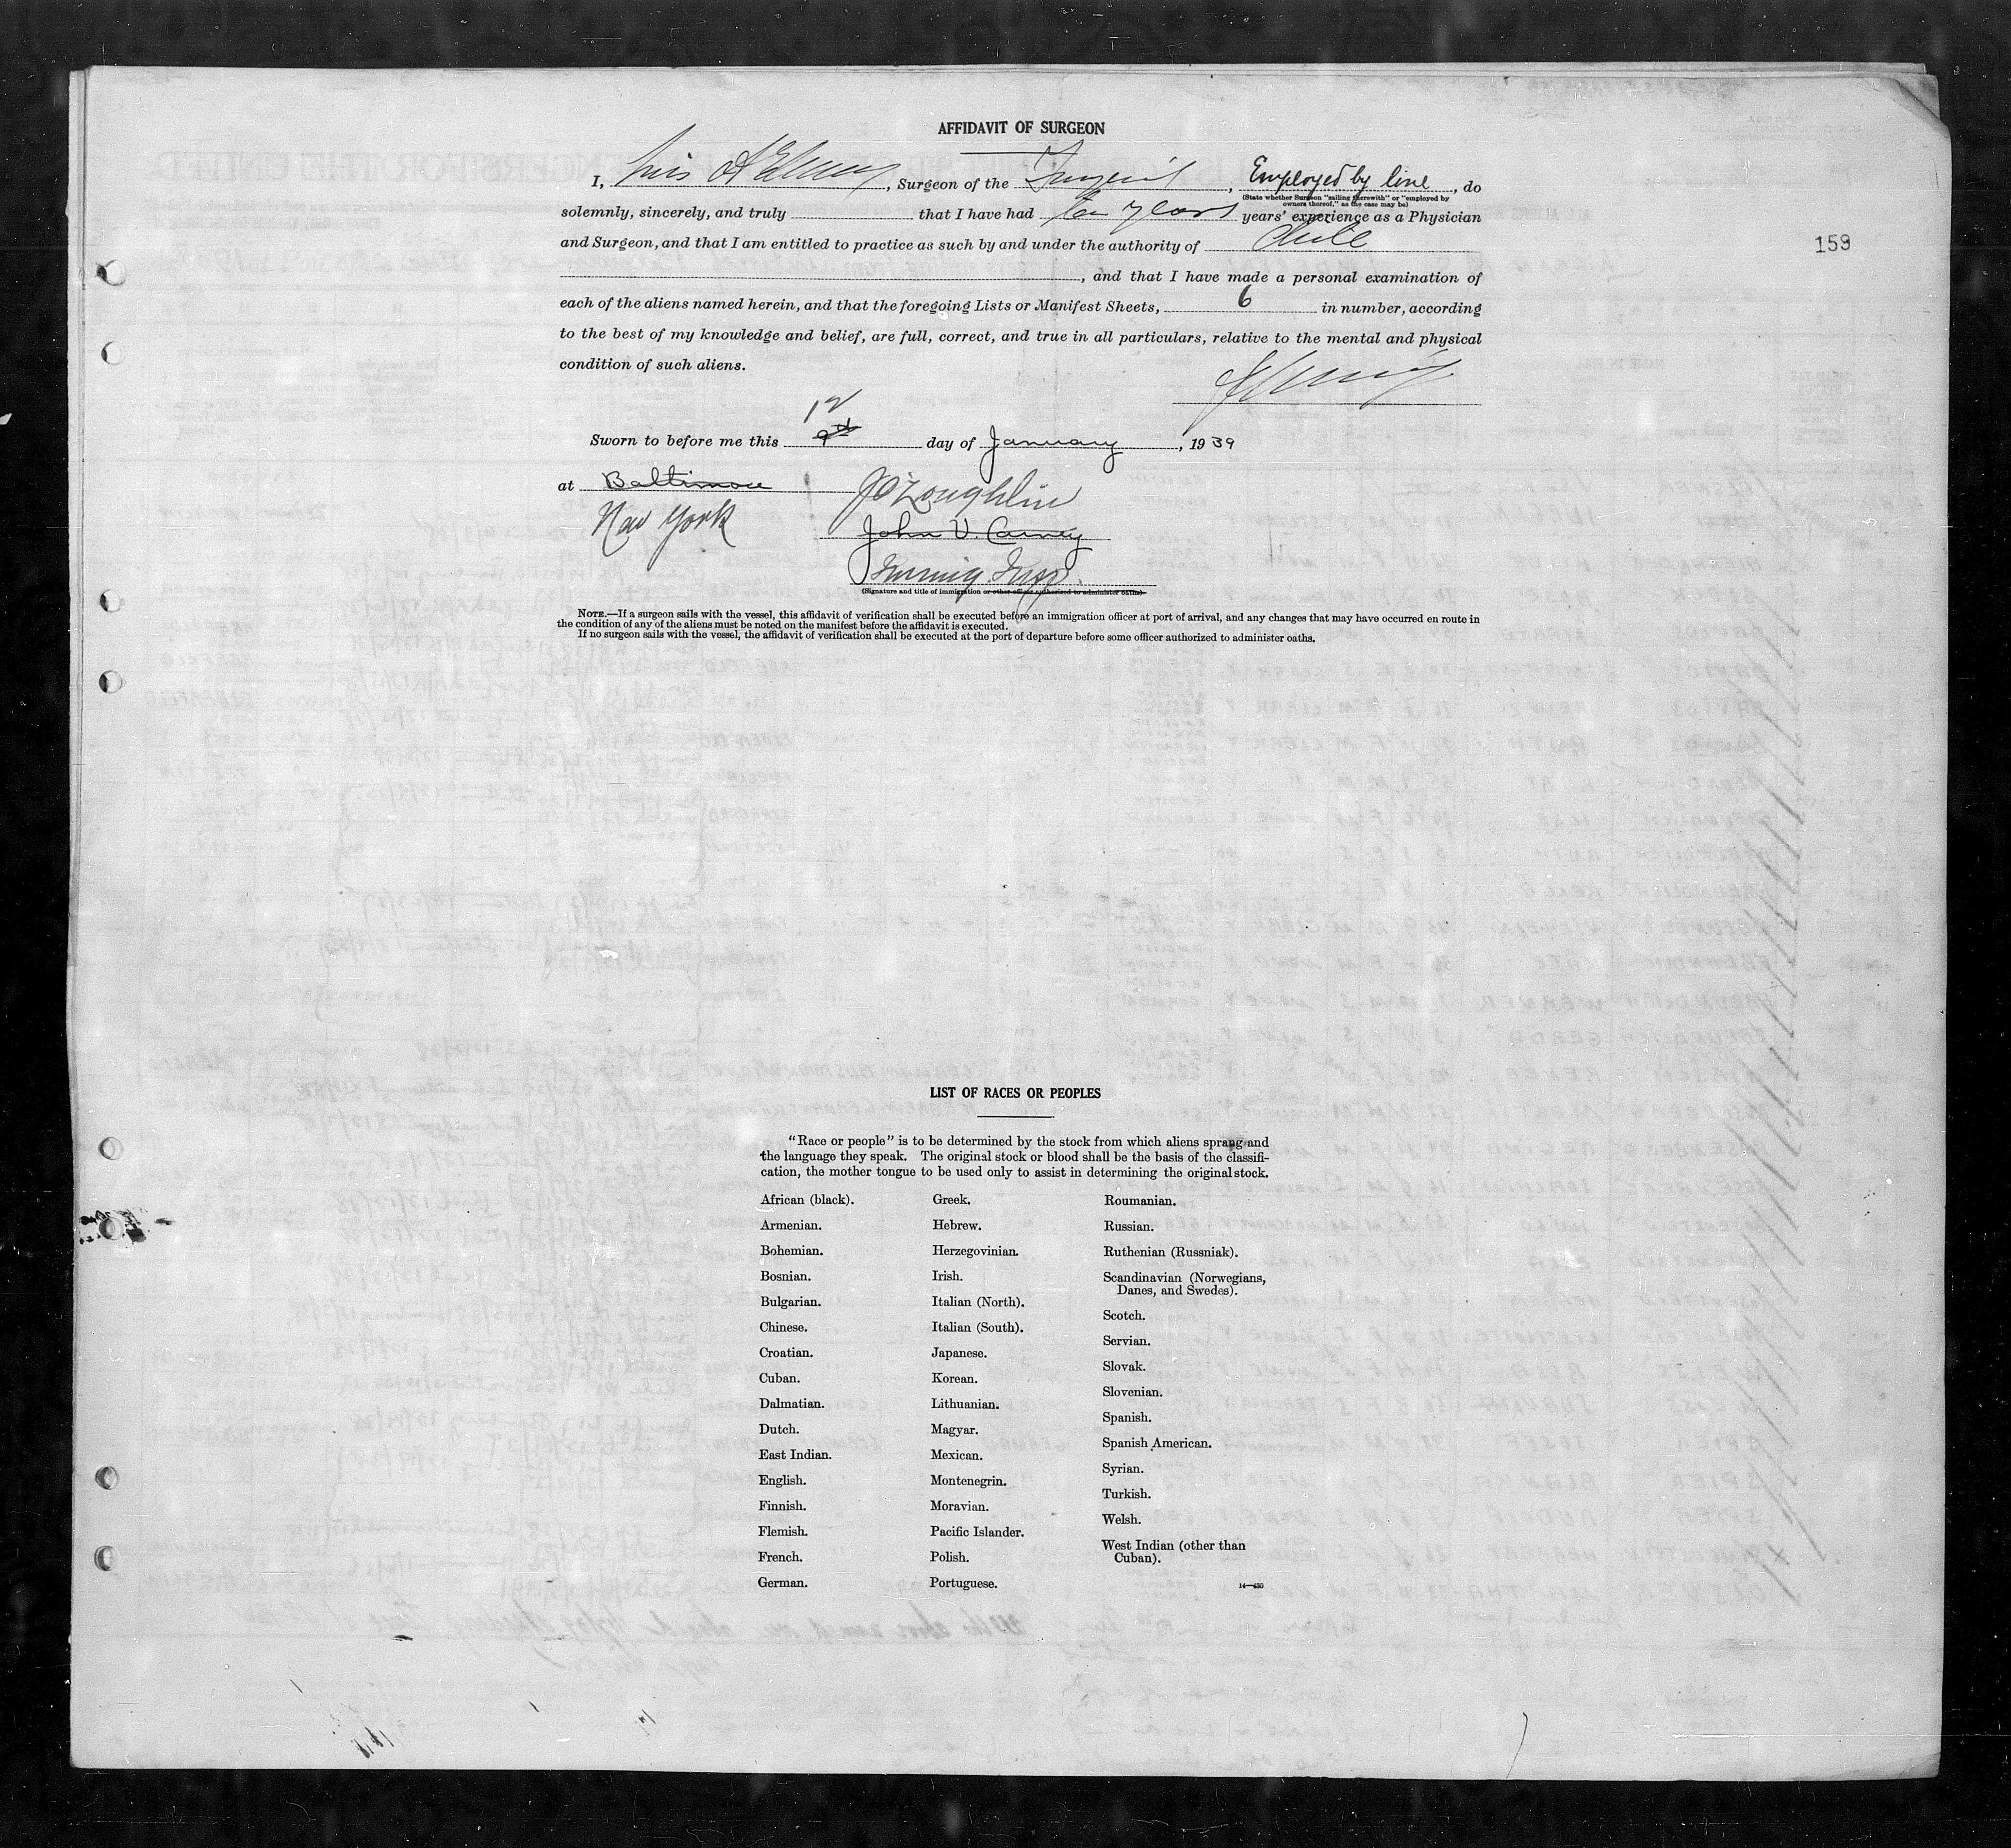 AFFIDAVIT OF SURGEON
I, Luis, Surgeon of the, Employed by line, do
(State whether Surgeon "sailing therewith" or "employed by
owners thereof," as the case may be)
solemnly, sincerely, and truly that I have had ten years years' experience as a Physician
and Surgeon, and that I am entitled to practice as such by and under the authority of Chile
, and that I have made a personal examination of
each of the aliens named herein, and that the foregoing Lists or Manifest Sheets, 6 in number, according
to the best of my knowledge and belief, are full, correct, and true in all particulars, relative to the mental and physical
condition of such aliens.
159
12
Sworn to before me this 9th day of January, 1939
at Baltimore J O'Loughlin
New York John V. Carney
Immig Insp.
(Signature and title of immigration or other officer authorized to administer oaths)
NOTE.—If a surgeon sails with the vessel, this affidavit of verification shall be executed before an immigration officer at port of arrival, and any changes that may have occurred en route in
the condition of any of the aliens must be noted on the manifest before the affidavit is executed.
If no surgeon sails with the vessel, the affidavit of verification shall be executed at the port of departure before some officer authorized to administer oaths.
LIST OF RACES OR PEOPLES
"Race or people" is to be determined by the stock from which aliens sprang and
the language they speak. The original stock or blood shall be the basis of the classifi-
cation, the mother tongue to be used only to assist in determining the original stock.
African (black).
Armenian.
Bohemian.
Bosnian.
Bulgarian.
Chinese.
Croatian.
Cuban.
Dalmatian.
Dutch.
East Indian.
English.
Finnish.
Flemish.
French.
German.
Greek.
Hebrew.
Herzegovinian.
Irish.
Italian (North).
Italian (South).
Japanese.
Korean.
Lithuanian.
Magyar.
Mexican.
Montenegrin.
Moravian.
Pacific Islander.
Polish.
Portuguese.
Roumanian.
Russian.
Ruthenian (Russniak).
Scandinavian (Norwegians,
Danes, and Swedes).
Scotch.
Servian.
Slovak.
Slovenian.
Spanish.
Spanish American.
Syrian.
Turkish.
Welsh.
West Indian (other than
Cuban).